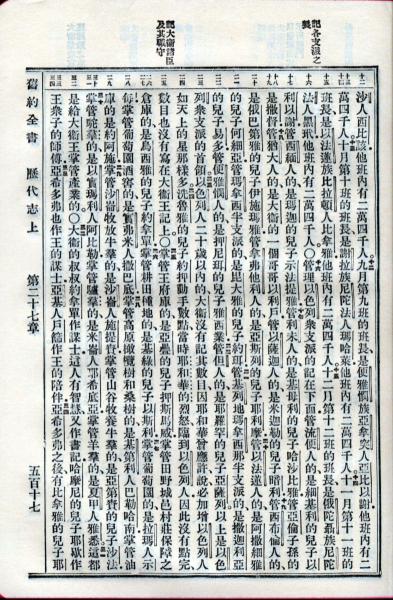 記各支派之長
記大衛諸臣及其職守
沙人西比該他班內有二萬四千人九月第九班的班長是便雅憫族亞拿突人亞比以謝他班內有二
萬四千人十月第十班的班長是謝拉族尼陀法人瑪哈萊他班內有二萬四千人十一月第十一班的
班長是以法蓮族比拉頓人比拿雅他班內有二萬四千人十二月第十二班的班長是俄陀聶族尼陀
法人黑玳他班內有二萬四千人〇管理以色列衆支派的記在下面管流便人的是細基利的兒子以
利以謝管西緬人的是瑪迦的兒子示法提雅管利未人的是基母利的兒子哈沙比雅管亞倫子孫的
是撒督管猶大人的是大衛的一個哥哥以利戶管以薩迦人的是米迦勒的兒子暗利管西布倫人的
是俄巴第雅的兒子伊施瑪雅管拿弗他利人的是亞斯列的兒子耶利摩管以法蓮人的是阿撒細雅
的兒子何細亞管瑪拿西半支派的是毘大雅的兒子約珥管基列地瑪拿西那半支派的是撒迦利亞
的兒子易多管便雅憫人的是押尼珥的兒子雅西業管但人的是耶羅罕的兒子亞薩列以上是以色
列衆支派的首領以色列人二十歲以內的大衛沒有記其數目因耶和華曾應許說必加增以色列人
如天上的星那樣多洗魯雅的兒子約押動手數點當時耶和華的烈怒臨到以色列人因此沒有點完
數目也沒有寫在大衛王記上〇掌管王府庫的是亞疊的兒子押斯馬威掌管田野城邑村莊保障之
倉庫的是烏西雅的兒子約拿單掌管耕田種地的是基綠的兒子以斯利掌管葡萄園的是拉瑪人示
每掌管葡萄園酒窖的是實弗米人撒巴底掌管高原橄欖樹和桑樹的是基第利人巴勒哈南掌管油
庫的是約阿施掌管沙崙牧放牛羣的是沙崙人施提賚掌管山谷牧養牛羣的是亞第賚的兒子沙法
掌管駝羣的是以實瑪利人阿比勒掌管驢羣的是米崙人耶希底亞掌管羊羣的是夏甲人雅悉這都
是給大衛王掌管產業的〇大衛的叔叔約拿單作謀士這人有智慧又作書記哈摩尼的兒子耶歇作
王衆子的師傅亞希多弗也作王的謀士亞基人戶篩作王的陪伴亞希多弗之後有比拿雅的兒子耶
舊約全書 歷代志上 第二十七章 五百十七